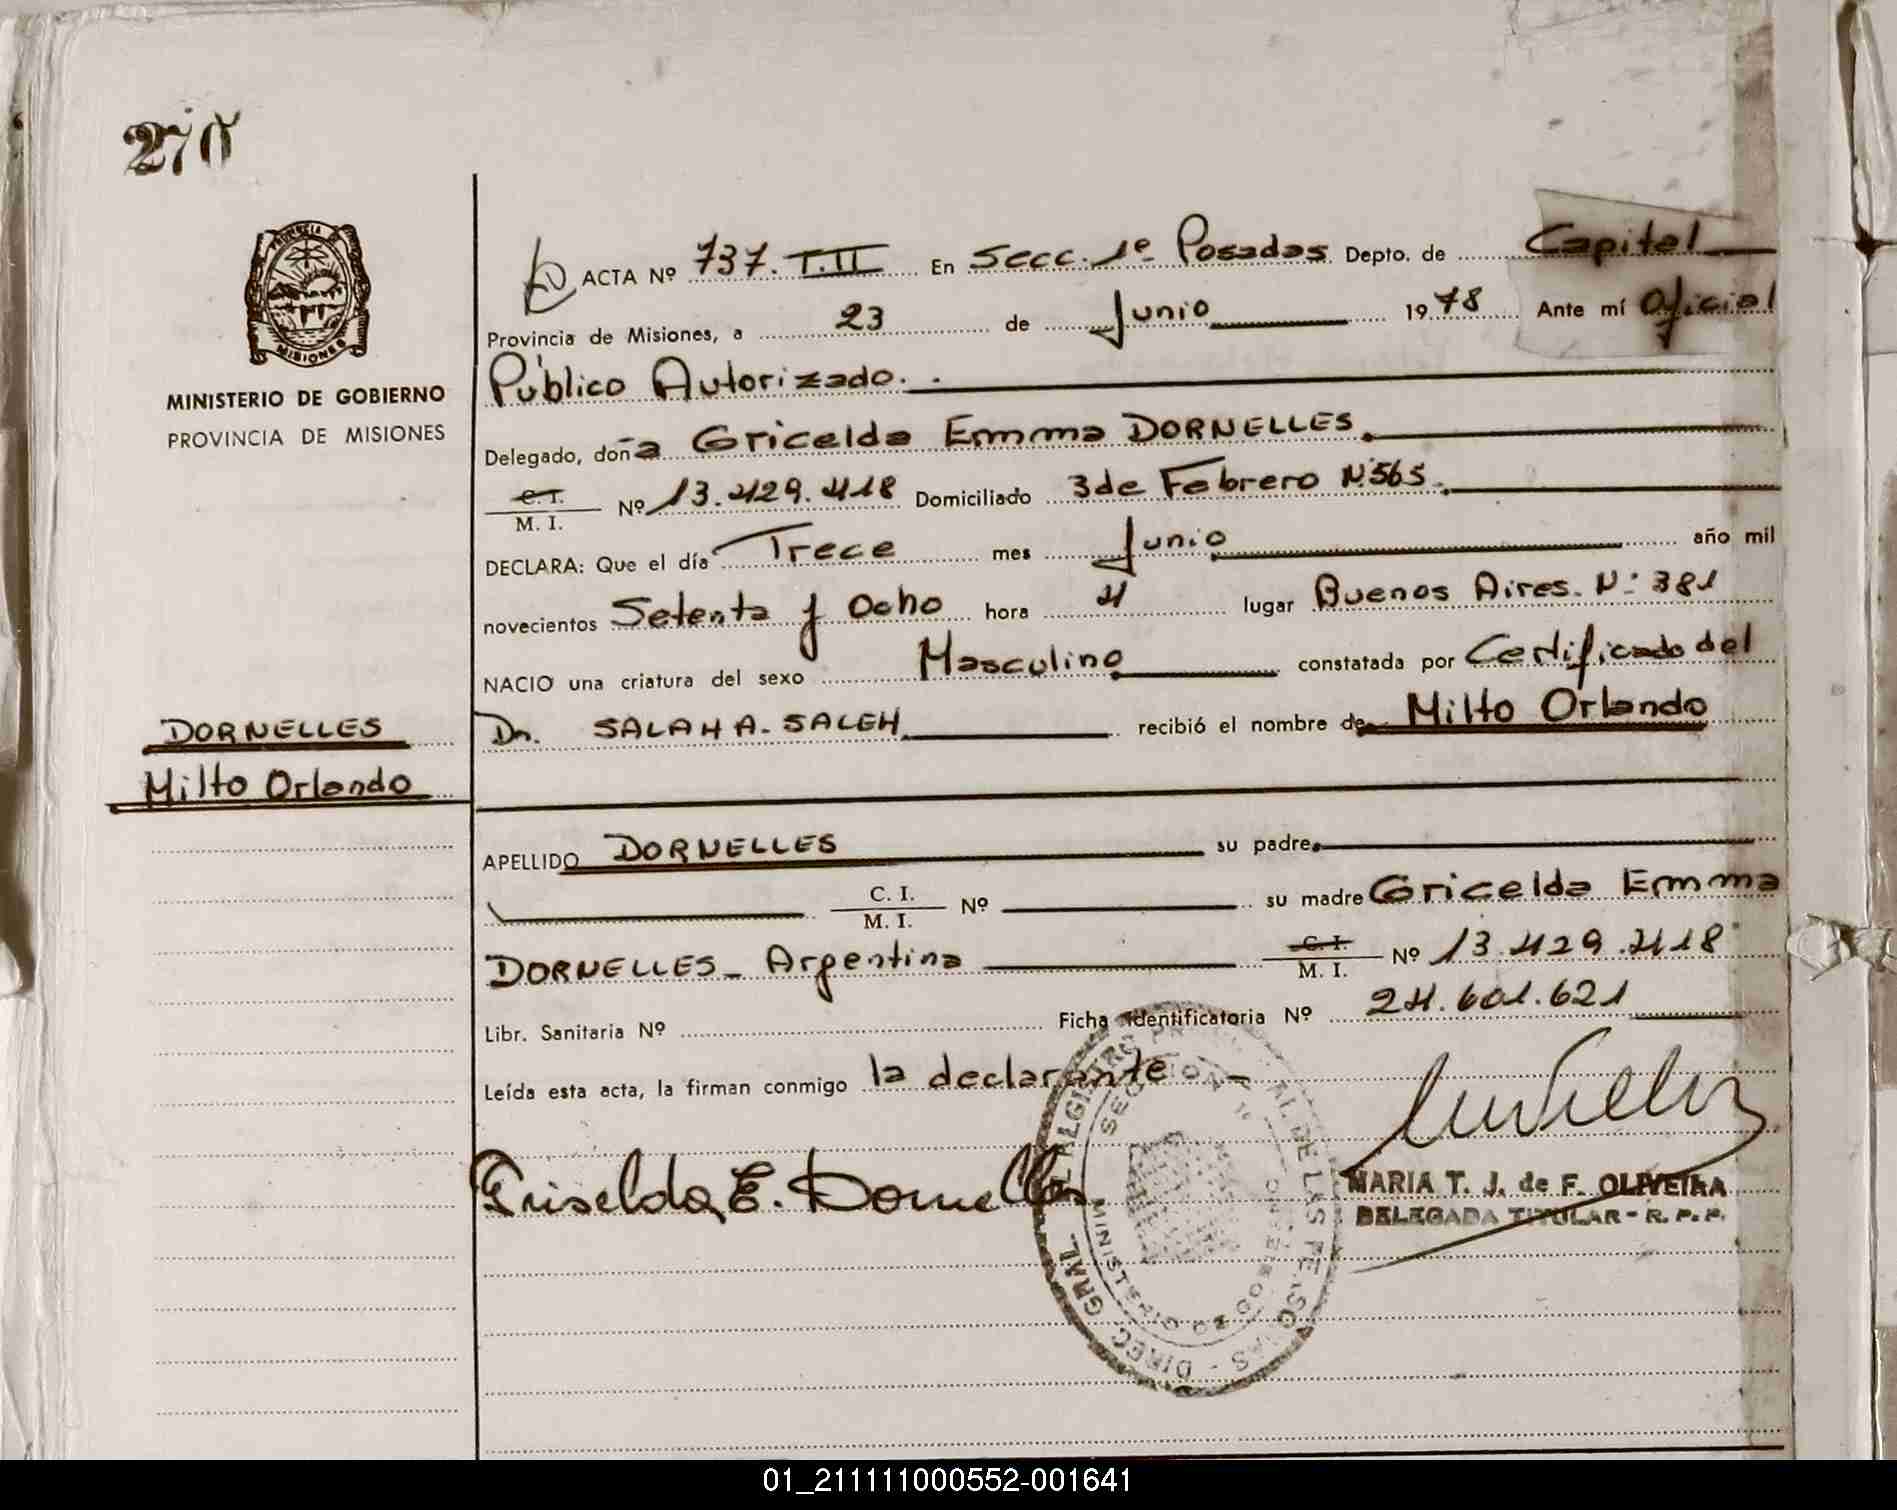 270
PROVINCIA DE
MISIONES
MINISTERIO DE GOBIERNO
PROVINCIA DE MISIONES
DORNELLES
Milto Orlando
ACTA Nº 737. T.II En Secc. 1º Posadas Depto. de Capital
Provincia de Misiones, a 23 de Junio 1978 Ante mí Oficial
Público Autorizado.
Delegado, doña Gricelda Emma DORNELLES.
C. I.
M. I. Nº 13.429.418 Domiciliado 3 de Febrero Nº 565.
DECLARA: Que el día Trece mes Junio año mil
novecientos Setenta y Ocho hora 4 lugar Buenos Aires. Nº 381
NACIO una criatura del sexo Masculino constatada por Certificado del
Dr. SALAH A. SALEH recibió el nombre de Milto Orlando
APELLIDO DORNELLES su padre
C. I.
M. I. Nº su madre Gricelda Emma
DORNELLES - Argentina C. I.
M. I. Nº 13.429.418
Libr. Sanitaria Nº Ficha Identificatoria Nº 24.601.621
Leída esta acta, la firman conmigo la declarante.-
Griselda E. Dornelles
MARIA T. J. de F. OLIVEIRA
DELEGADA TITULAR - R. P. P.
DIREC. GRAL. DE LAS PERSONAS
SECCION 1º
MINISTERIO DE GOBIERNO
01_211111000552-001641